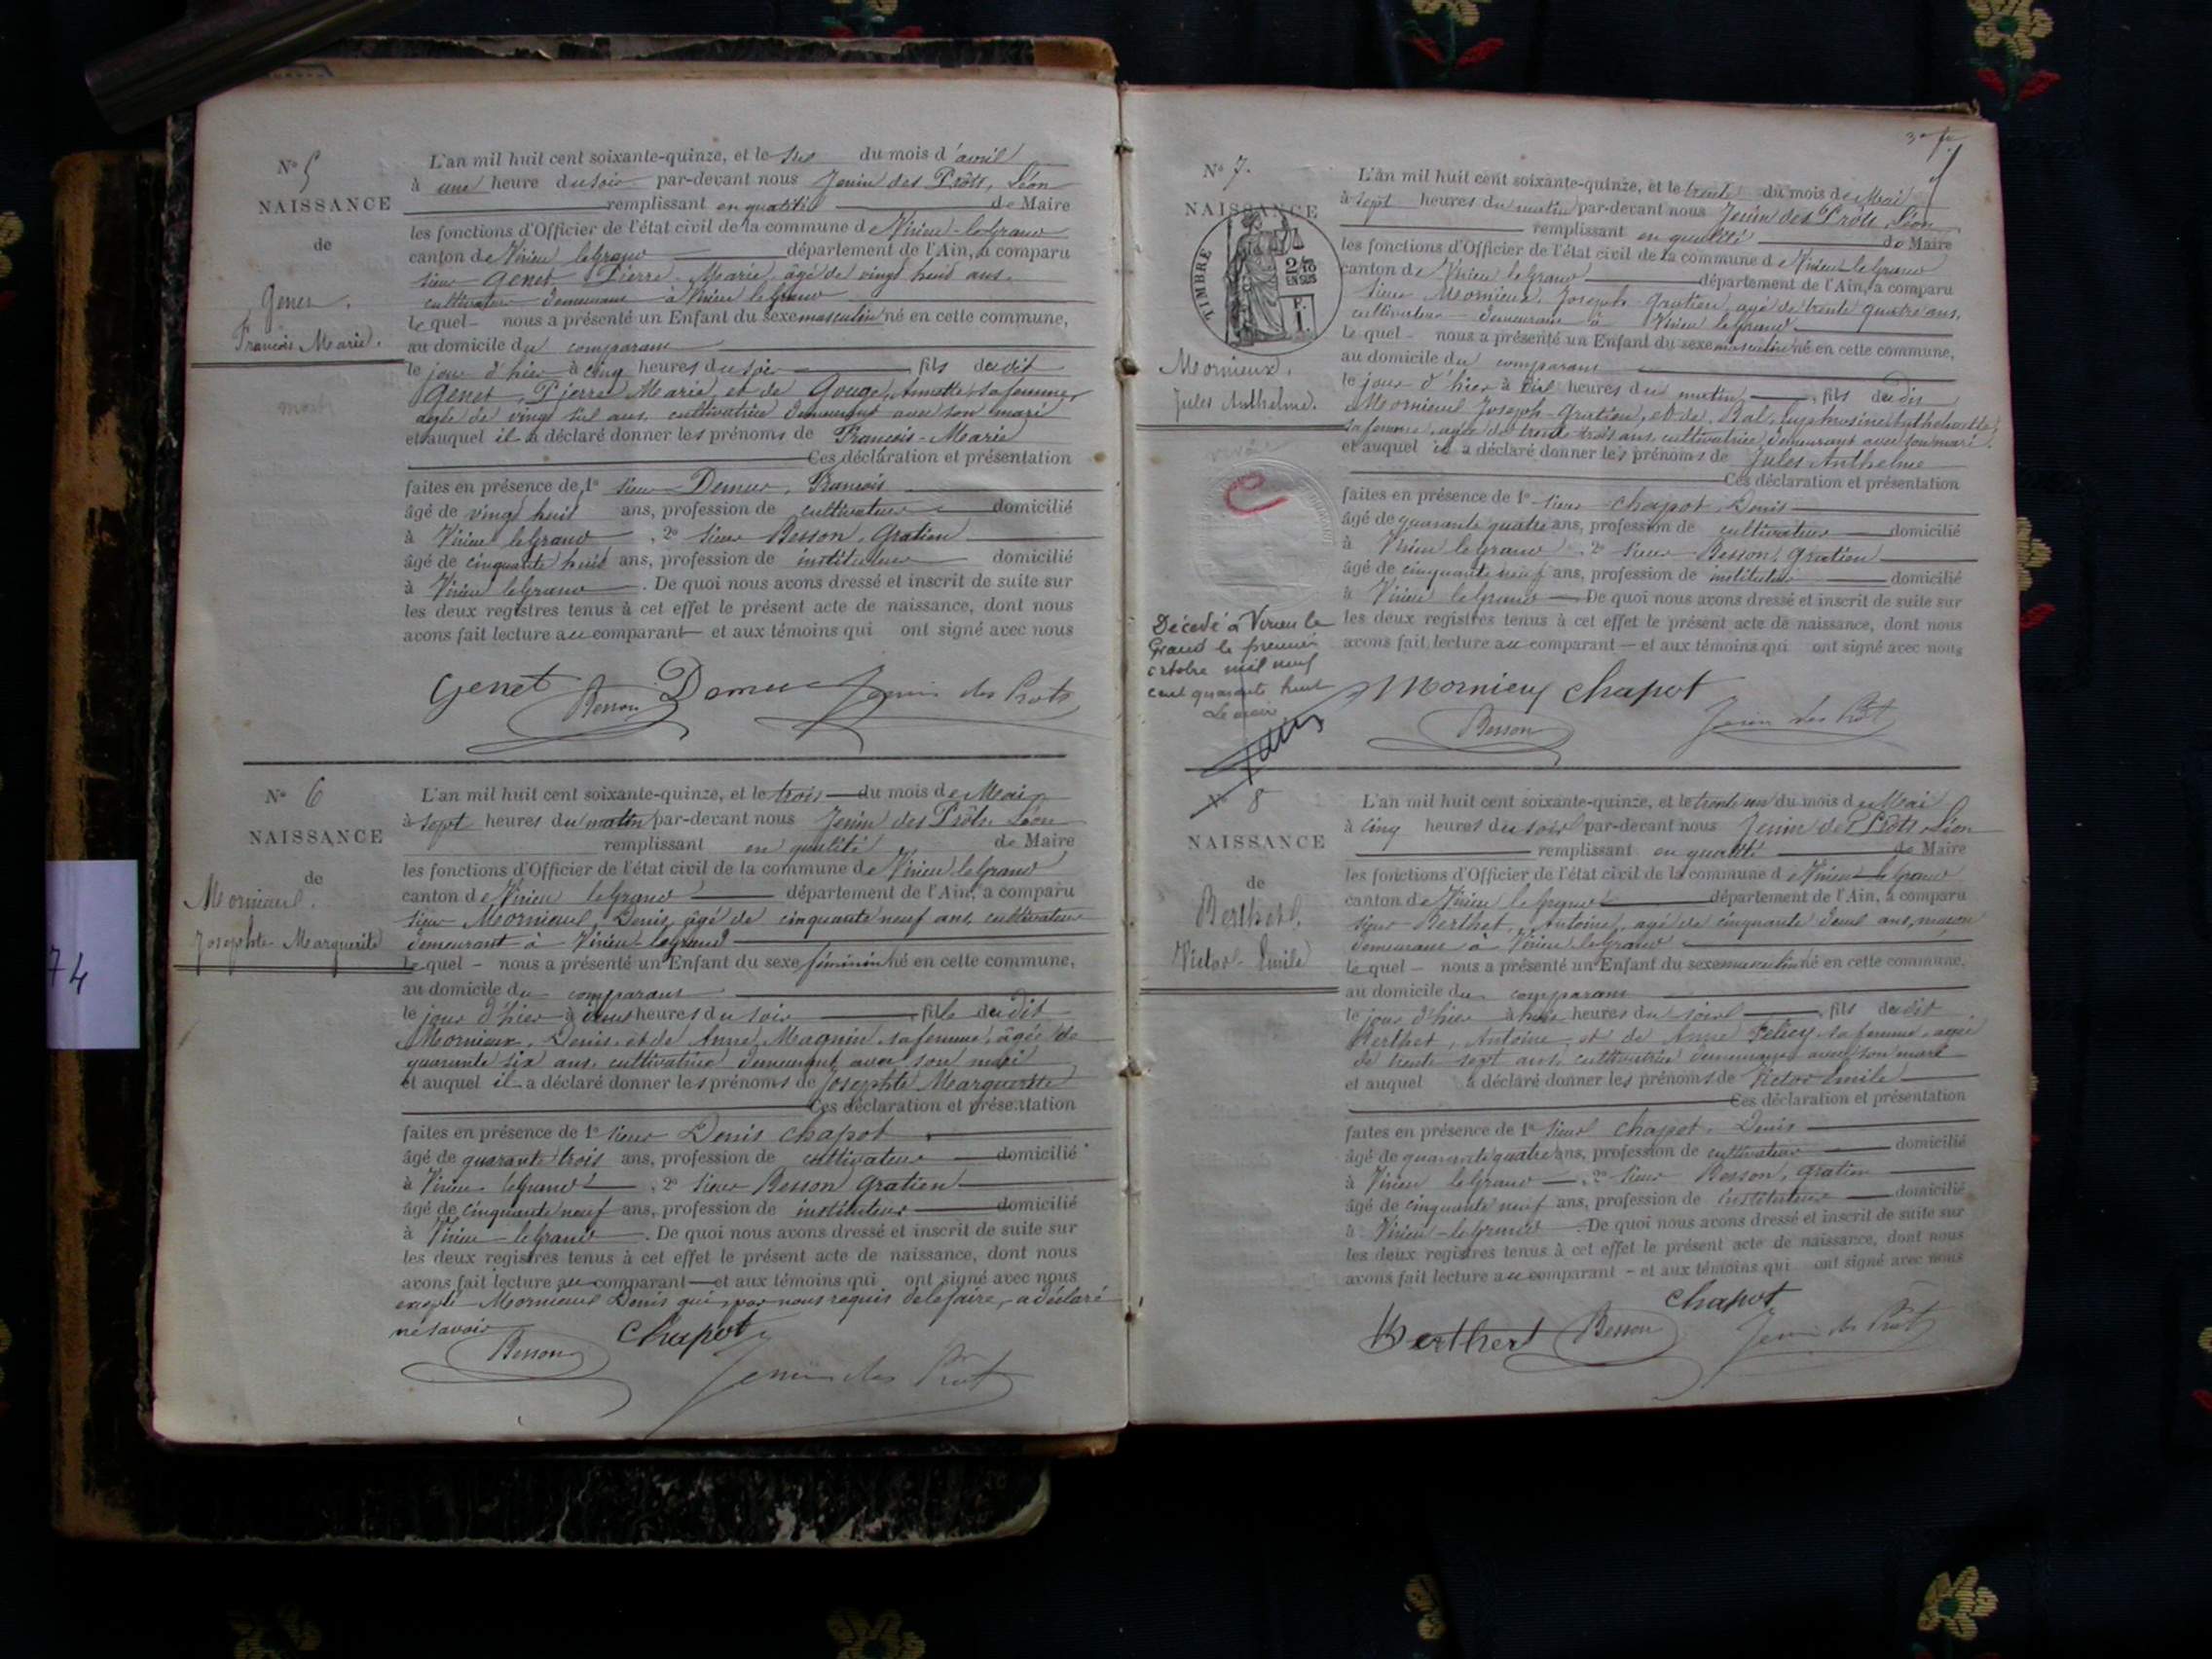 N° 5
NAISSANCE
de
Genet.
François Marie.
mort
L'an mil huit cent soixante-quinze, et le six du mois d'avril
à une heure du soir par-devant nous Jenin des Prôts, Léon
remplissant en qualité de Maire
les fonctions d'Officier de l'état civil de la commune de Virieu-le-Grand
canton de Virieu le Grand département de l'Ain, a comparu
sieur Genet Pierre Marie, âgé de vingt huit ans.
cultivateur demeurant à Virieu le Grand
Lequel nous a présenté un Enfant du sexe masculin né en cette commune,
au domicile du comparant
le jour d'hier à cinq heures du soir fils dudit
Genet, Pierre Marie, et de Gouge, Annette, sa femme,
agée de vingt six ans, cultivatrice demeurant avec son mari
et auquel il a déclaré donner les prénoms de François-Marie
Ces déclaration et présentation
faites en présence de 1° sieur Demur, François
âgé de vingt huit ans, profession de cultivateur domicilié
à Virieu le Grand, 2° sieur Besson, Gratien
âgé de cinquante huit ans, profession de instituteur domicilié
à Virieu le Grand. De quoi nous avons dressé et inscrit de suite sur
les deux registres tenus à cet effet le présent acte de naissance, dont nous
avons fait lecture au comparant et aux témoins qui ont signé avec nous
Genet Besson Demur Jenin des Prôts
N° 6
NAISSANCE
de
Mornieux.
Josephte Marguerite
L'an mil huit cent soixante-quinze, et le trois du mois de Mai
à sept heures du matin par-devant nous Jenin des Prôts Léon
remplissant en qualité de Maire
les fonctions d'Officier de l'état civil de la commune de Virieu le Grand
canton de Virieu le Grand département de l'Ain, a comparu
sieur Mornieux Denis, âgé de cinquante neuf ans, cultivateur
demeurant à Virieu-le Grand
Lequel nous a présenté un Enfant du sexe féminin né en cette commune,
au domicile du comparant
le jour d'hier à deux heures du soir fille dudit
Mornieux, Denis, et de Anne Magnin, sa femme, âgée de
quarante six ans, cultivatrice demeurant avec son mari
et auquel il a déclaré donner les prénoms de Josephte Marguerite
Ces déclaration et présentation
faites en présence de 1° sieur Denis Chapot
âgé de quarante trois ans, profession de cultivateur domicilié
à Virieu le Grand, 2° sieur Besson Gratien
âgé de cinquante neuf ans, profession de instituteur domicilié
à Virieu-le Grand. De quoi nous avons dressé et inscrit de suite sur
les deux registres tenus à cet effet le présent acte de naissance, dont nous
avons fait lecture au comparant et aux témoins qui ont signé avec nous
excepté Mornieux Denis qui par nous requis de le faire, a déclaré
ne savoir
Besson Chapot Jenin des Prôt
74
N° 7.
NAISSANCE
TIMBRE
2/10
EN SUS
Mornieux.
Jules Anthelme.
Décédé à Virieu le
Grand le premier
octobre mil neuf
cent quarante huit
Le maire
L'an mil huit cent soixante-quinze, et le trente du mois de Mai
à sept heures du matin par-devant nous Jenin des Prôts, Léon
remplissant en qualité de Maire
les fonctions d'Officier de l'état civil de la commune de Virieu-le Grand
canton de Virieu le Grand département de l'Ain, a comparu
sieur Mornieux, Joseph-Gratien, agé de trente quatre ans,
cultivateur demeurant à Virieu le Grand
Lequel nous a présenté un Enfant du sexe masculin né en cette commune,
au domicile du comparant
le jour d'hier à six heures du matin, fils dudit
Mornieux Joseph-Gratien, et de Bal,
sa femme, agée de trente trois ans, cultivatrice demeurant avec son mari.
et auquel il a déclaré donner les prénoms de Jules Anthelme
Ces déclaration et présentation
faites en présence de 1° sieur Chapot Denis
âgé de quarante quatre ans, profession de cultivateur domicilié
à Virieu le Grand, 2° sieur Besson, Gratien
âgé de cinquante neuf ans, profession de instituteur domicilié
à Virieu le Grand De quoi nous avons dressé et inscrit de suite sur
les deux registres tenus à cet effet le présent acte de naissance, dont nous
avons fait lecture au comparant et aux témoins qui ont signé avec nous
Mornieux Chapot
Besson Jenin des Prôt
N° 8
NAISSANCE
de
Berthet,
Victor-Emile
L'an mil huit cent soixante-quinze, et le trente un du mois de Mai
à cinq heures du soir par-devant nous Jenin des Prôts Léon
remplissant en qualité de Maire
les fonctions d'Officier de l'état civil de la commune de Virieu-le Grand
canton de Virieu le Grand département de l'Ain, a comparu
sieur Berthet, Antoine, agé de cinquante deux ans, maçon
demeurant à Virieu le Grand
Lequel nous a présenté un Enfant du sexe masculin né en cette commune,
au domicile du comparant
le jour d'hier à huit heures du soir, fils dudit
Berthet, Antoine et de Anne Felicy sa femme, agée
de trente sept ans, cultivatrice demeurant avec son mari
et auquel a déclaré donner les prénoms de Victor Emile
Ces déclaration et présentation
faites en présence de 1° sieur Chapot, Denis
âgé de quarante quatre ans, profession de cultivateur domicilié
à Virieu le Grand, 2° sieur Besson, Gratien
âgé de cinquante neuf ans, profession de instituteur domicilié
à Virieu-le Grand. De quoi nous avons dressé et inscrit de suite sur
les deux registres tenus à cet effet le présent acte de naissance, dont nous
avons fait lecture au comparant et aux témoins qui ont signé avec nous
Chapot
Berthet Besson Jenin des Prôt